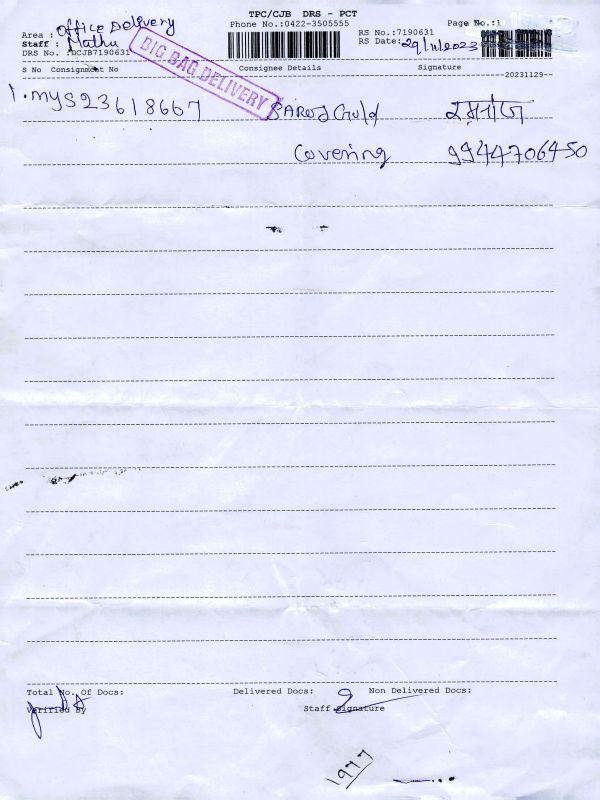 TPC/CJB DRS - PCT
Office Delivery
Phone No.:0422-3505555
Page No.:1
Area :
RS No.:7190631
Staff : Mathu
RS Date: 29/11/2023
DRS No. :DCJB7190631
BIG BAG DELIVERY
S No Consignment No Consignee Details Signature
20231129
1. MYS23618667
Covering 9944706450
Total No. Of Docs: Delivered Docs: Non Delivered Docs:
Verified By Staff Signature
1977